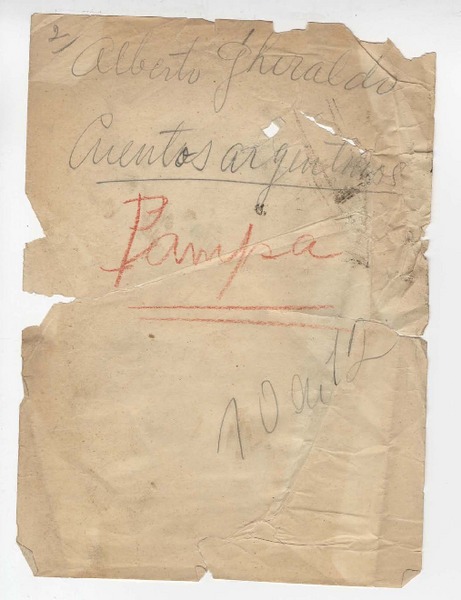 2)
Alberto Ghiraldo
Cuentos argentinos
Pampa